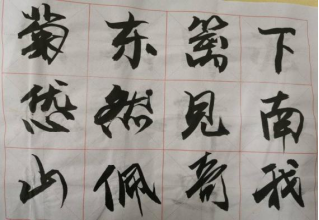 菊东篱下
悠然見南
山佩奇我